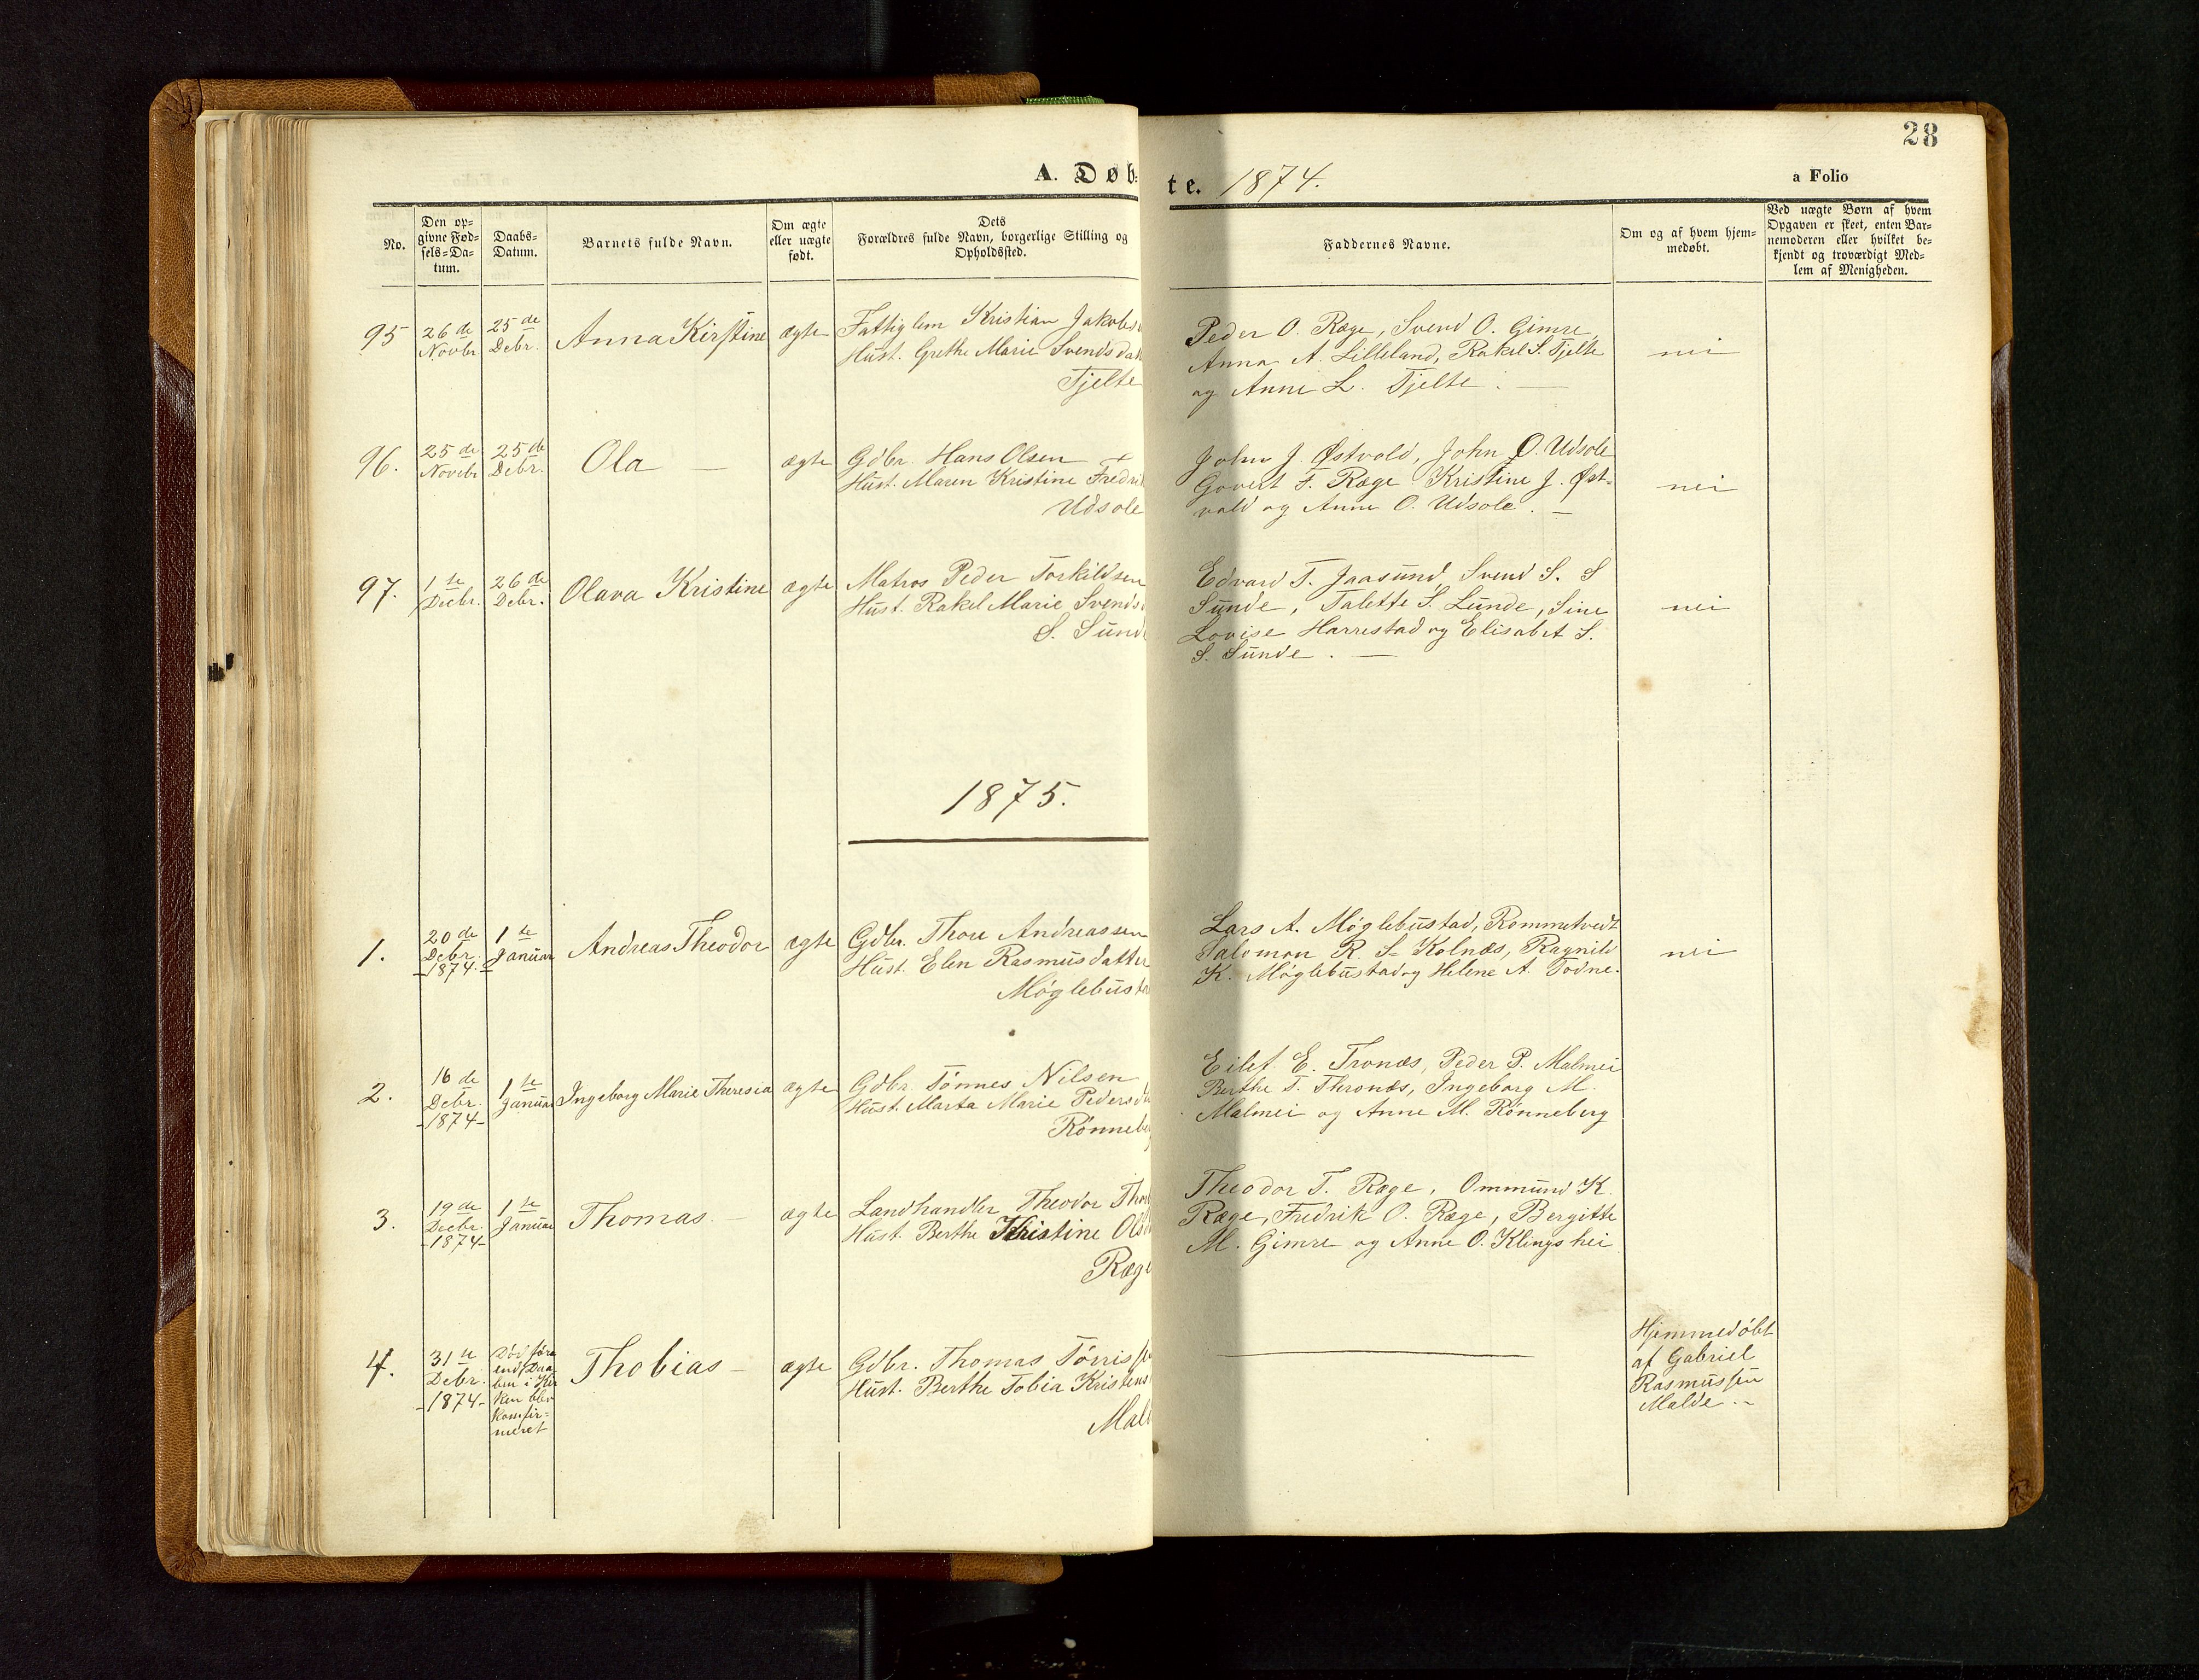 28
A. Døb-
te. 1874.
a Folio
No.
Den op-
givne Fød-
sels-Da-
tum.
Daabs-
Datum.
Barnets fulde Navn.
Om ægte
eller uægte
født.
Dets
Forældres fulde Navn, borgerlige Stilling og
Opholdssted.
Faddernes Navne.
Om og af hvem hjem-
medøbt.
Ved uægte Børn af hvem
Opgaven er skeet, enten Bar-
nemoderen eller hvilket be-
kjendt og troværdigt Med-
lem af Menigheden.
95
26de
Novbr
25de
Debr.
Anna Kirstine
ægte
Fattiglem Kristian Jakobs
Hust. Grethe Marie Svendsdat
Tjelte
Peder O. Ræge, Svend O. Gimre,
Anna A. Lilleland, Rakel S. Tjelte
og Anne L. Tjelte.
nei
96.
25de
Novebr
25de
Debr.
Ola
ægte
Gdbr. Hans Olsen
Hust. Maren Kristine Fredri
Udsole
John J. Østvold, John O. Udsole
Govert F. Ræge Kristine J. Øst-
vold og Anne O. Udsole.
nei
97.
1te
Decbr.
26de
Debr.
Olava Kristine
ægte
Matros Peder Torkildsen
Hust. Rakel Marie Svends
S. Sund
Edvard T. Jaasund, Svend S. S
Sunde, Talette S. Lunde, Sine
Lovise Harrestad og Elisabet S.
S. Sunde.
nei
1875.
1.
20de
Debr.
1874.
1te
Januar
Andreas Theodor
ægte
Gdbr. Thore Andreassen
Hust. Elen Rasmusdatter
Møglebusta
Lars A. Møglebustad, Rommetvedt
Salomon R. S. Kolnæs, Ragnild
K. Møglebustad og Helene A. Todne.
nei
2.
16de
Debr.
1874
1te
Januar
Ingeborg Marie Theresia
ægte
Gdbr. Tønnes Nilsen
Hust. Marta Marie Pedersd
Rønneb
Eilef E. Tronæs, Peder P. Malmei
Berthe T. Thronæs, Ingeborg M.
Malmei og Anne M. Rønneberg
3.
19de
Decbr.
1874
1te
Januar
Thomas.
ægte
Landhandler Theodor Tho
Hust. Berthe Kristine Ols
Ræge
Theodor T. Ræge, Ommund K.
Ræge, Fredrik O. Ræge, Bergitte
M. Gimre og Anne O. Klingshei
4.
31te
Debr.
1874
Død føre
end Daa
ben i Kir
ken blev
konfir-
meret
Thobias
ægte
Gdbr. Thomas Tørriss
Hust. Berthe Tobia Kristens
Mal
Hjemmedøbt
af Gabriel
Rasmussen
Malde.